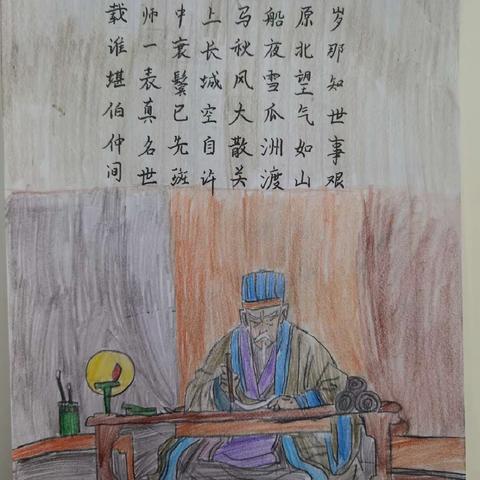 岁那知世事艰
原北望气如山
船夜雪瓜洲渡
马秋风大散关
上长城空自许
中衰鬓已先班
师一表真名世
载谁堪伯仲间